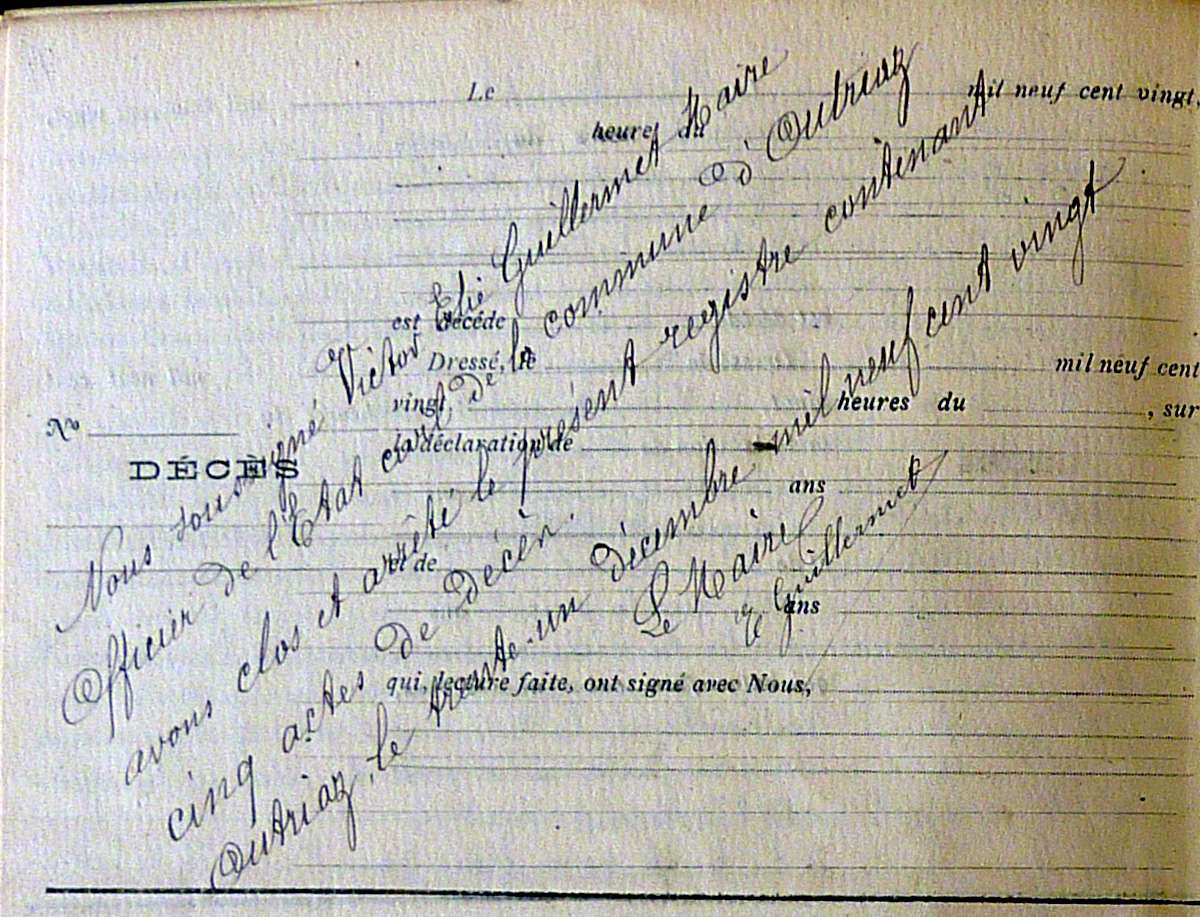 Le mil neuf cent vingt
heure du
est décédé
Dressé, le mil neuf cent
vingt, heures du , sur
No
la déclaration de
DÉCÈS
ans
et de
ans
qui, lecture faite, ont signé avec Nous,
Nous soussigné Victor Elie Guillermet Maire
Officier de l'Etat civil, de la commune d'Outriaz
avons clos et arrêté le présent registre contenant
cinq actes de décès.
Outriaz, le trente-un décembre mil neuf cent vingt
Le Maire
E Guillermet